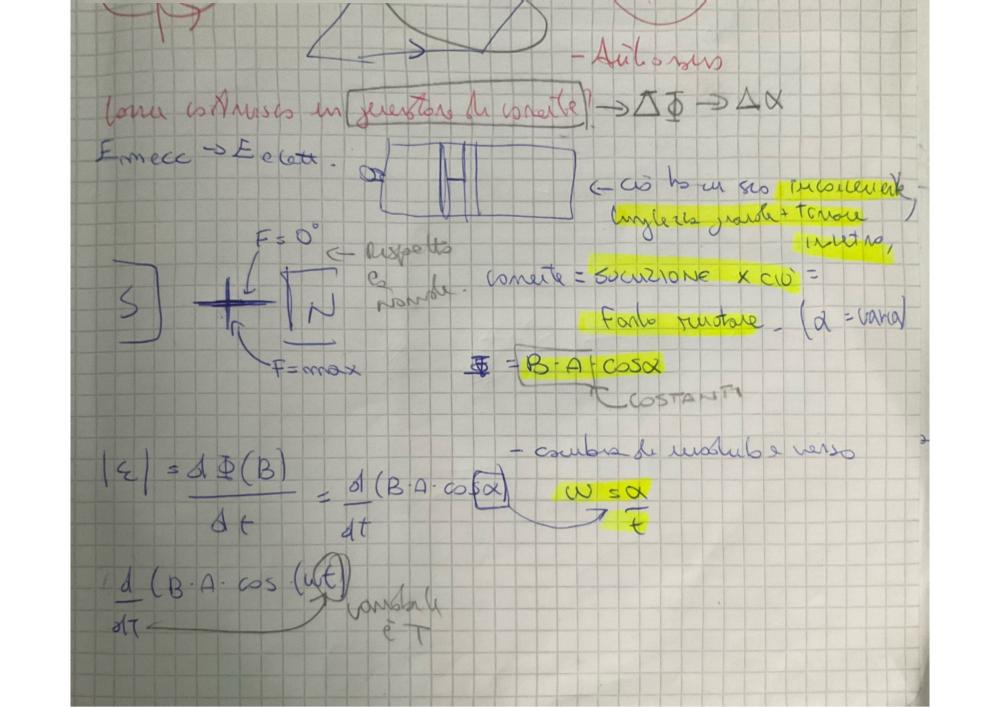 - Autobus
Come costruisco un generatore di corrente? → ΔΦ → Δα
Emecc → Eelett.
← ciò ha un suo inconveniente,
lunghezza grande + tensione
F = 0°
← Rispetto
a
normale.
corrente = SOLUZIONE x ciò =
S
N
Farlo ruotare. (α = varia)
F = max
Φ = B · A · cosα
COSTANTI
- cambia di modulo e verso
|ε| = dΦ(B) / dt = d/dt (B·A·cosα)
ω = α/t
d/dT (B·A·cos(ωt))
variabile
è T